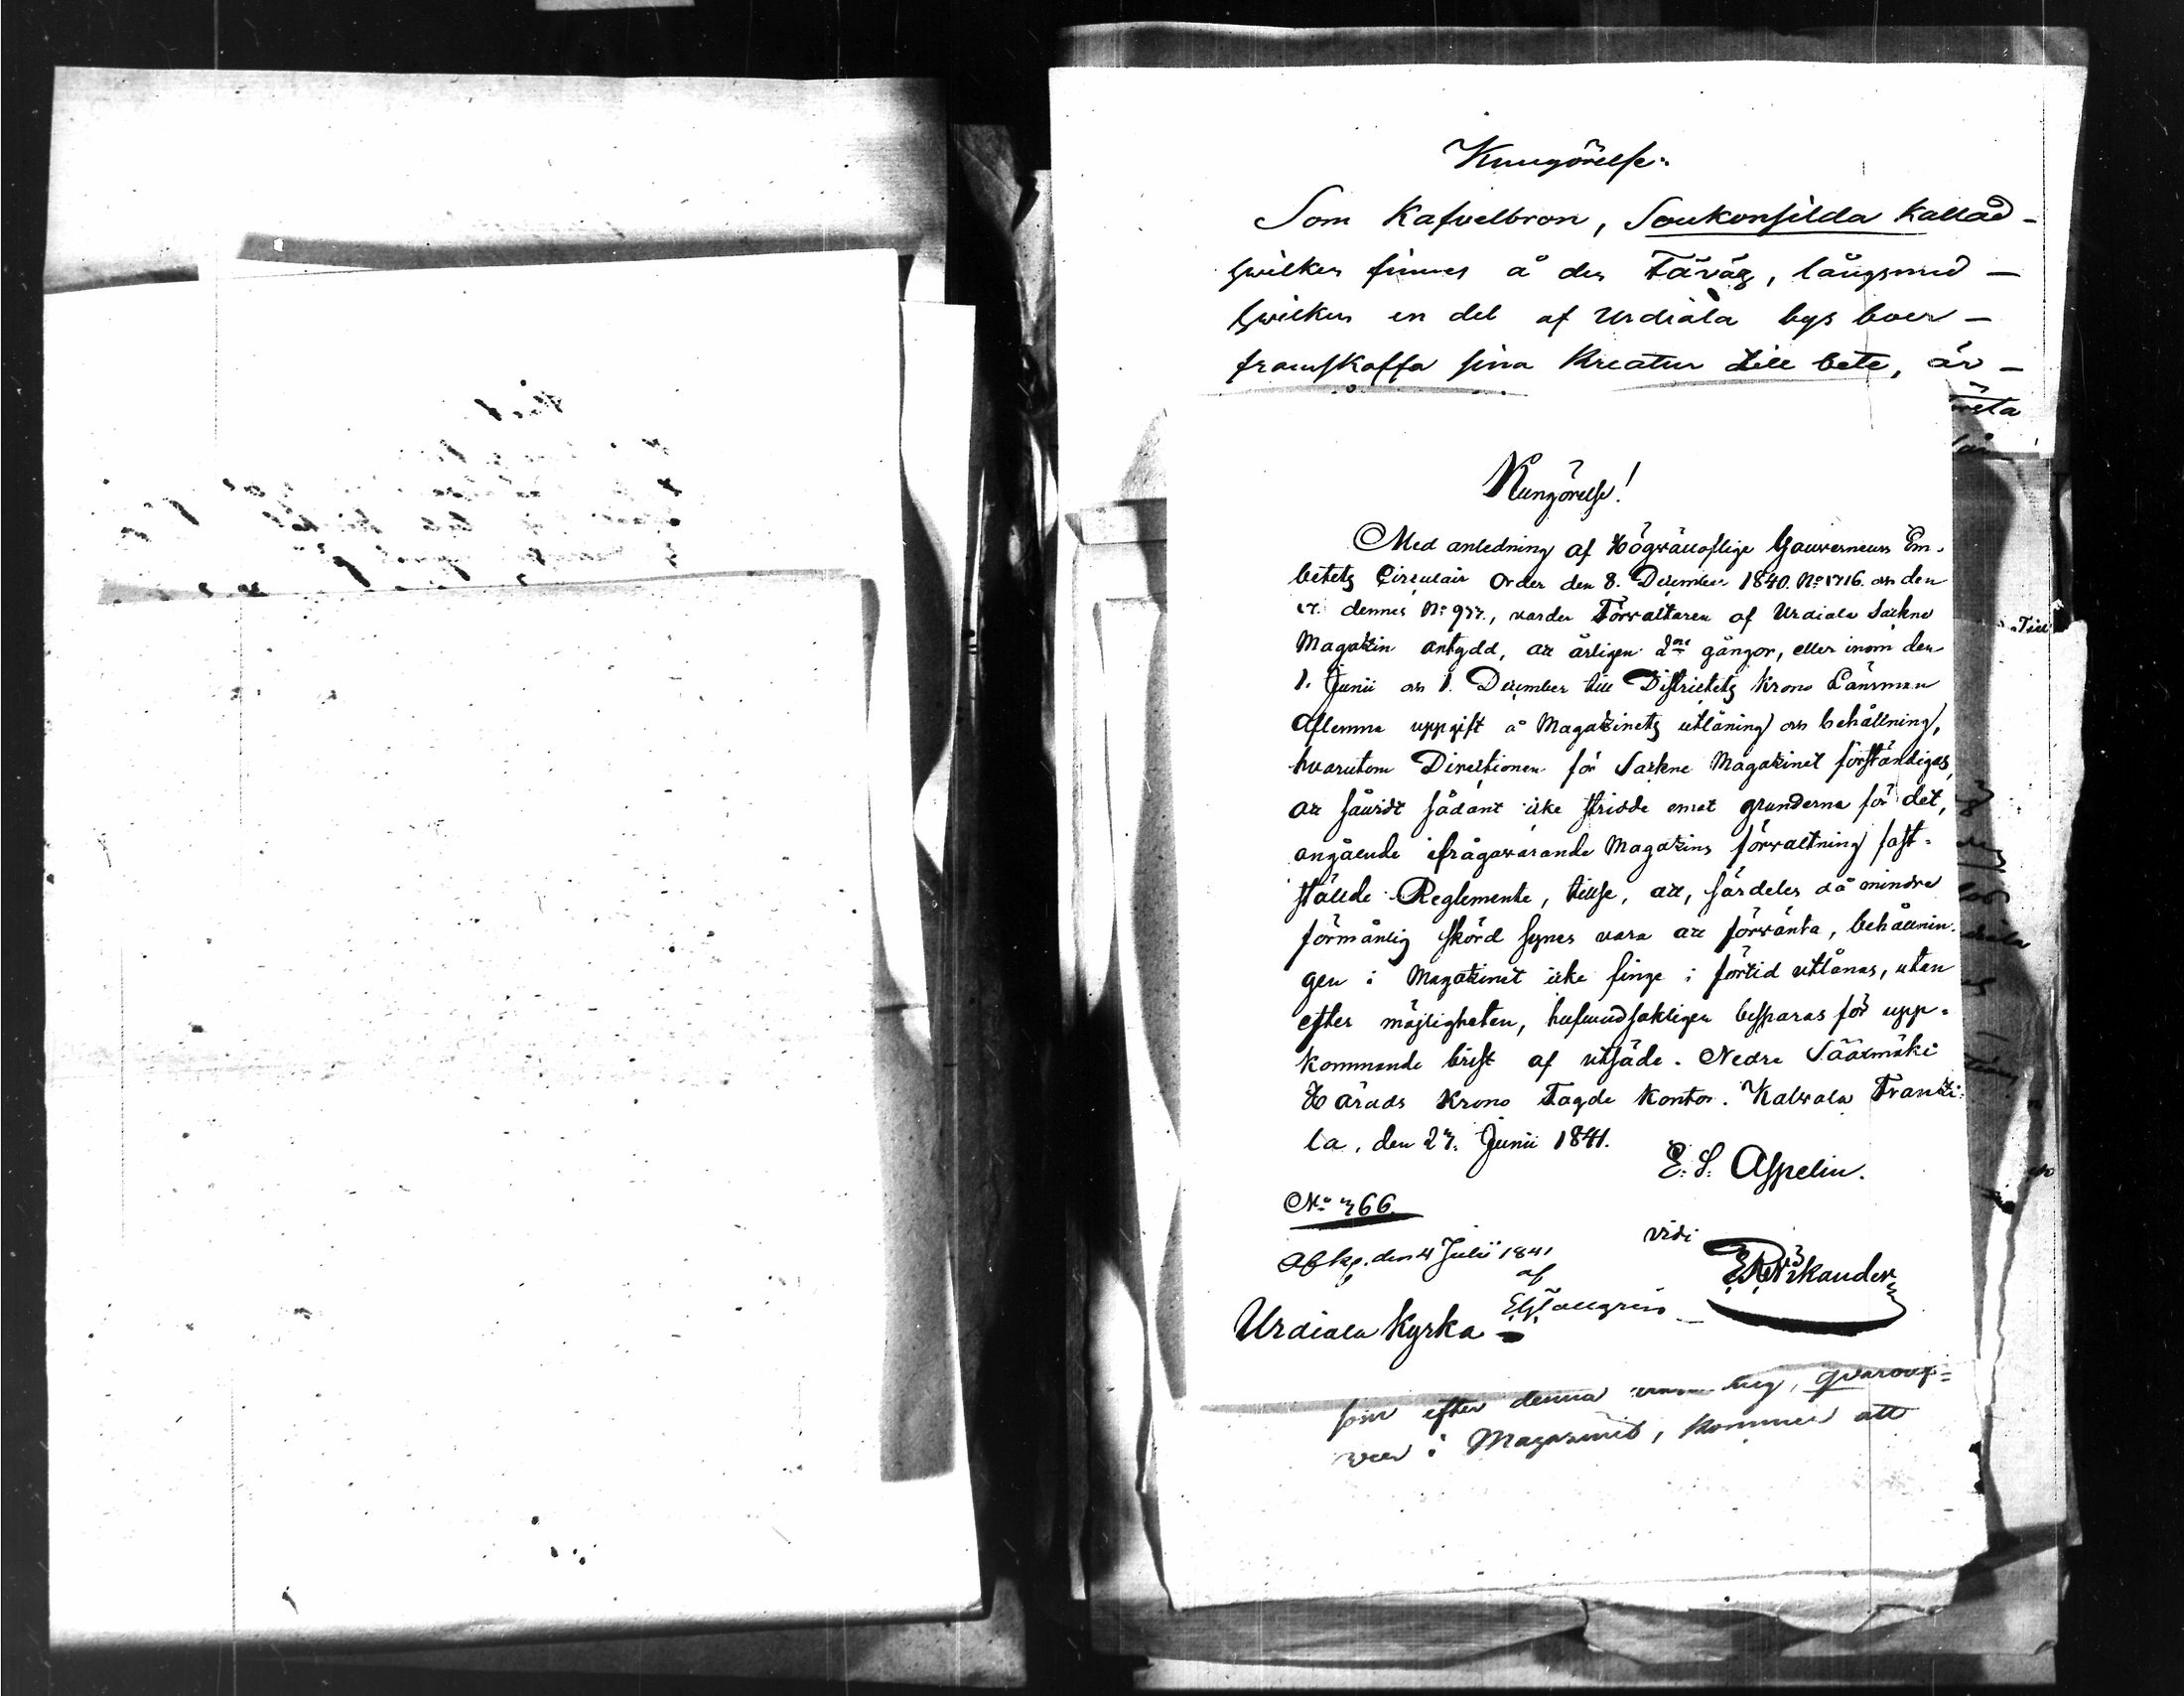 Kungörelse.
Som Kafvelbron, Soukonsilda kallad
hwilken finnes å den Fäväg, långsmed
hwilken en del af Urdiala bys boer
framskaffa sina Kreatur till bete, är
Kungörelse!
Med anledning af Högvälloflige Gouverneurs Em-
betets Circulair Order den 8. December 1840. No 1716. och den
17. dennes No 977., varder Förvaltaren af Urdiala Sockne
Magazin antydd, att årligen 2ne gångor, eller inom den
1. Junii och 1. December till Districtets Krono Länsman
aflemna uppgift å Magazinets utlåning och behållning,
hvarutom Directionen för Sockne Magazinet förständigas,
att såvidt sådant icke stridde emot grunderna för det,
angående ifrågavarande Magazins förvaltning fast-
ställde Reglemente, tillse, att, särdeles då mindre
förmånlig skörd synes vara att förvänta, behållnin-
gen i Magazinet icke finge i förtid utlånas, utan
efter möjligheten, hufvudsakligen besparas för upp-
kommande brist af utsäde. Nedre Sääxmäki
Härads Krono Fogde Kontor. Kalvola Franzi-
la, den 27. Junii 1841.
E. S. Aspelin.
No 366.
vidi
Afkp. den 4 Julii 1841
af
Urdiala Kyrka
som efter denna qvarong-
i Magasinet, kommer att